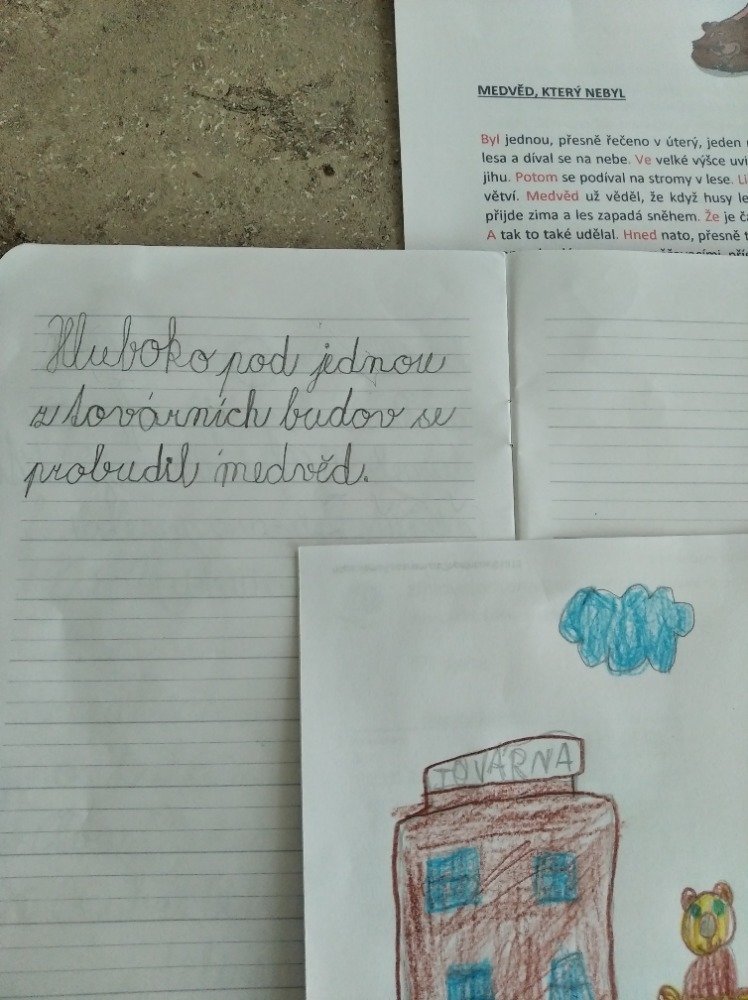 MEDVĚD, KTERÝ NEBYL
Byl jednou, přesně řečeno v úterý, jeden
lesa a díval se na nebe. Ve velké výšce uvi
jihu. Potom se podíval na stromy v lese. Li
větví. Medvěd už věděl, že když husy le
přijde zima a les zapadá sněhem. Že je č
A tak to také udělal. Hned nato, přesně t
Hluboko pod jednou
z továrních budov se
probudil medvěd.
TOVÁRNA